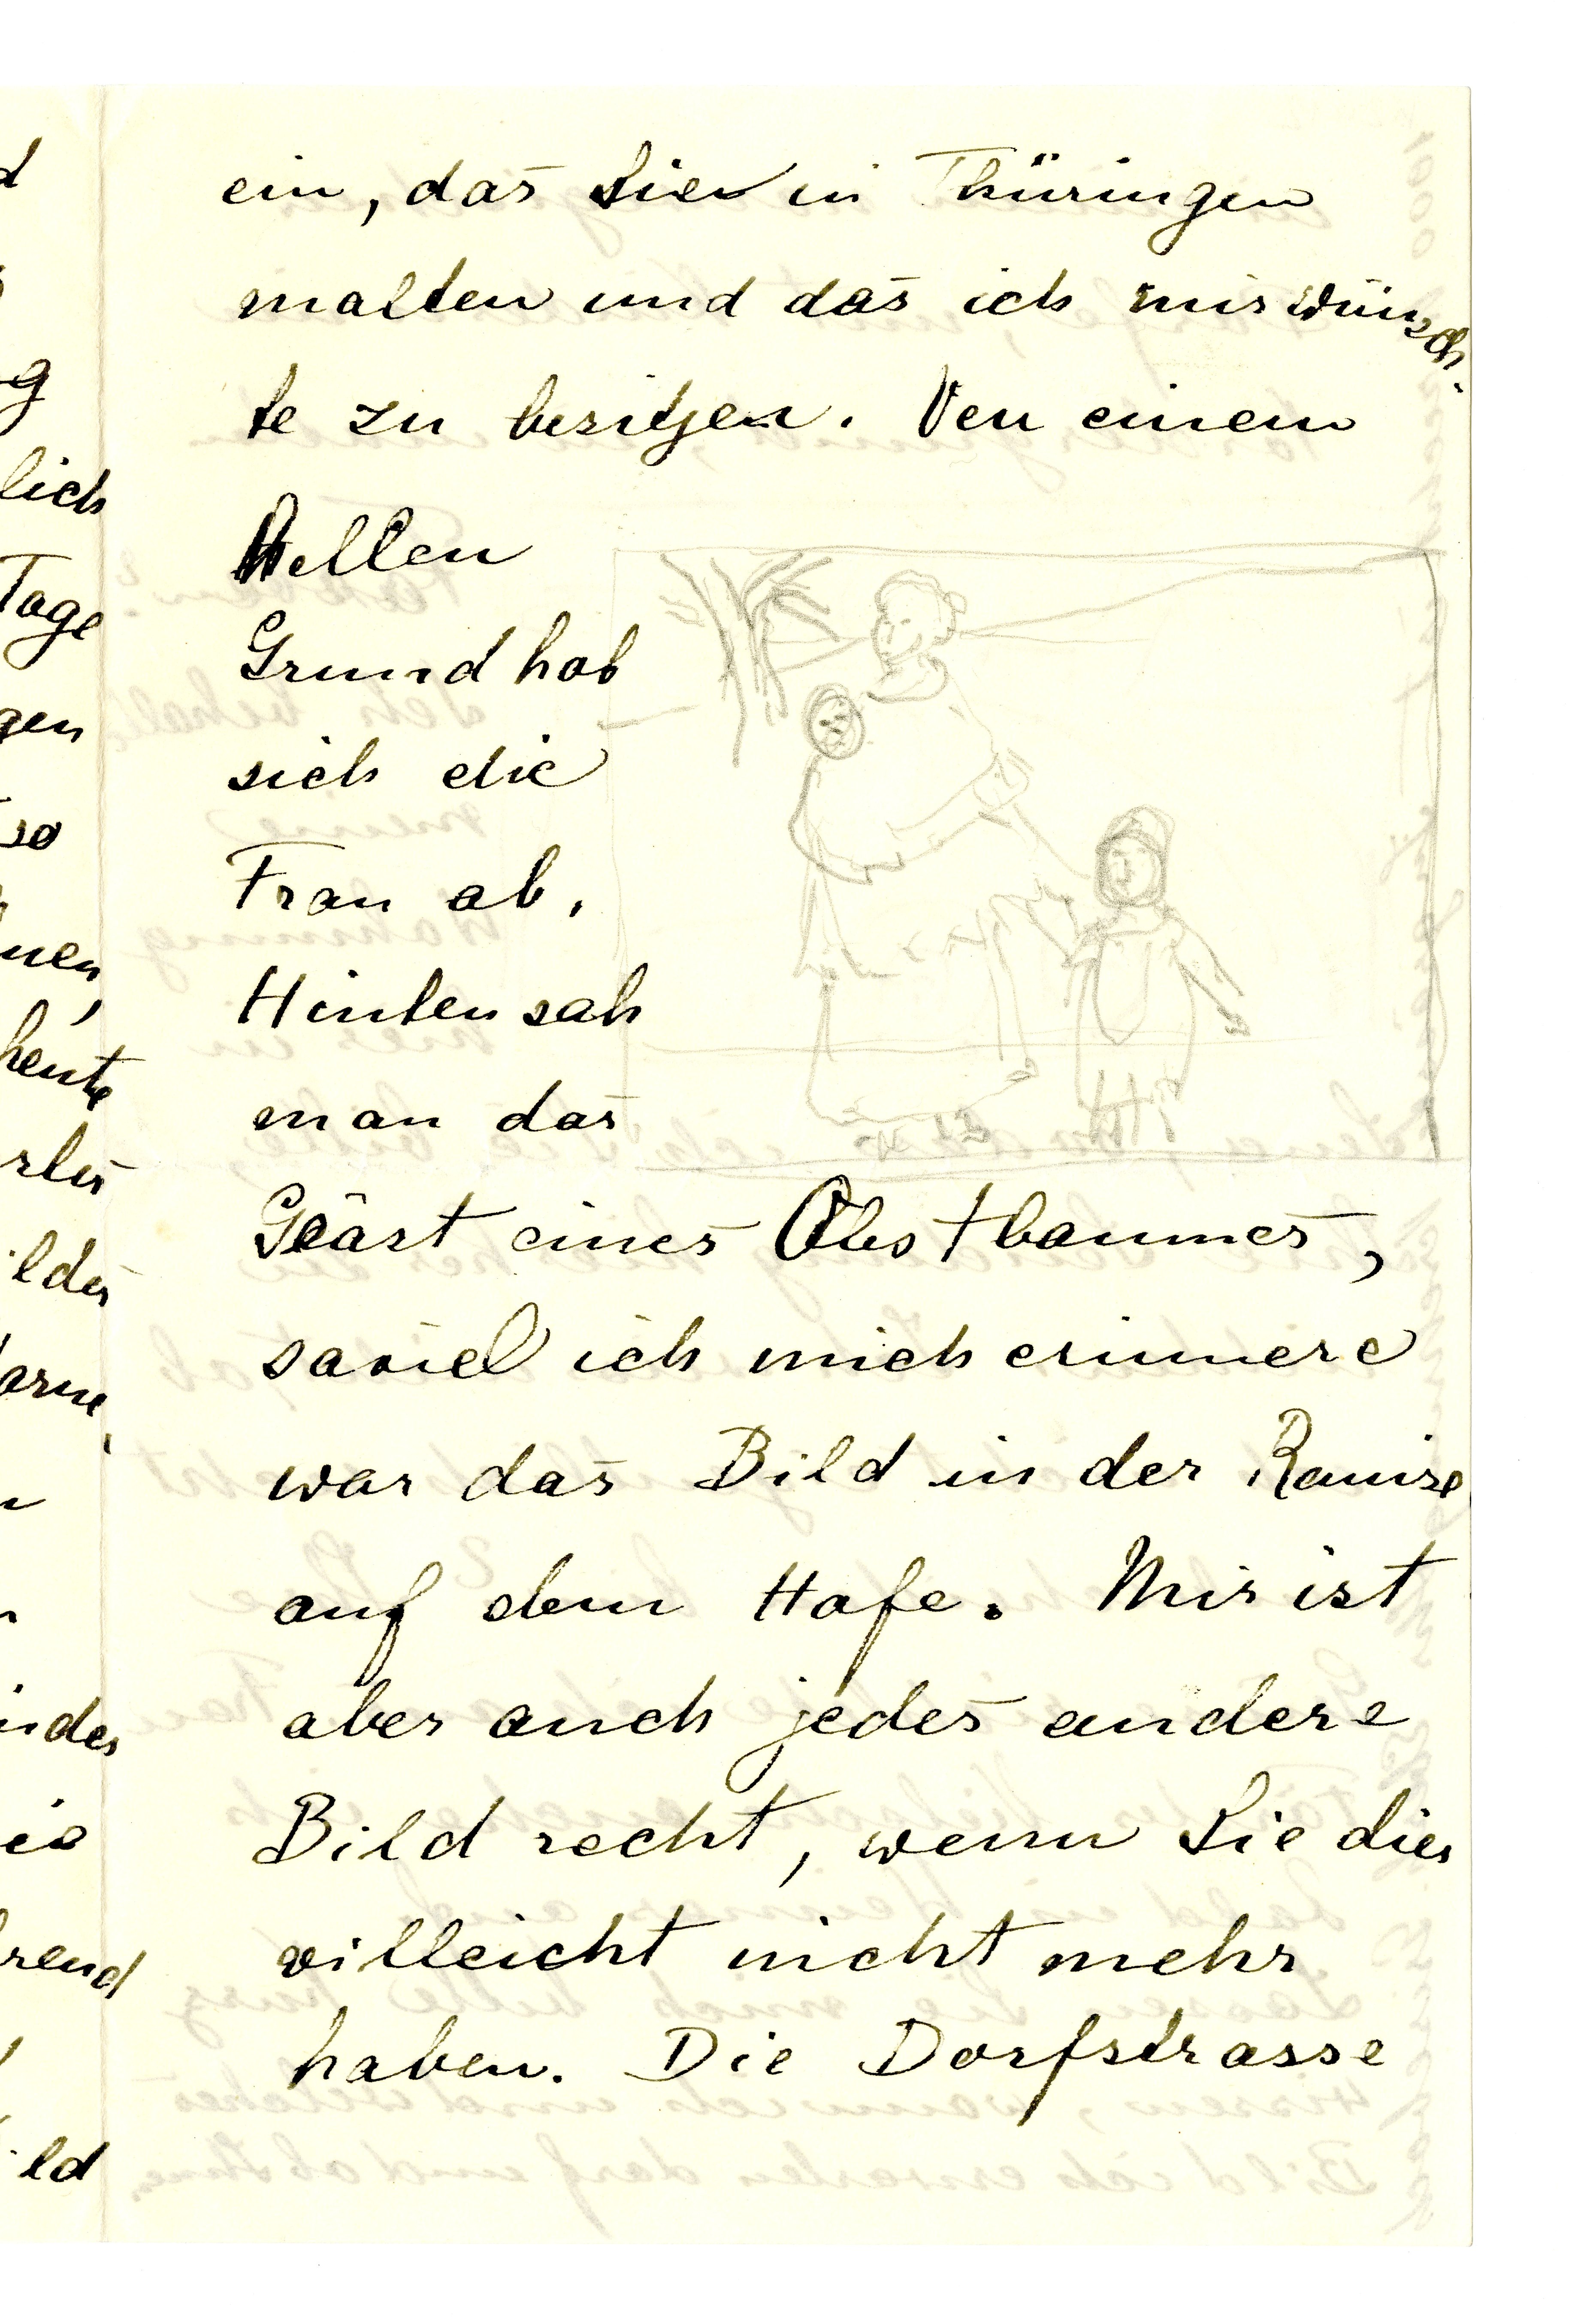 ein, das Sie in Thüringen
malten und das ich mir wünsch-
te zu besitzen. Von einem
Hellen
Grund hob
sich die
Frau ab.
Hinten sah
man das
Geäst eines Obstbaumes,
soviel ich mich erinnere
war das Bild in der
auf dem Hofe. Mir ist
aber auch jedes andere
Bild recht, wenn Sie dies
villeicht nicht mehr
haben. Die Dorfstrasse
d
g
lich
Tage
gen
so
nen,
heute
ilder
indes
rend
ild